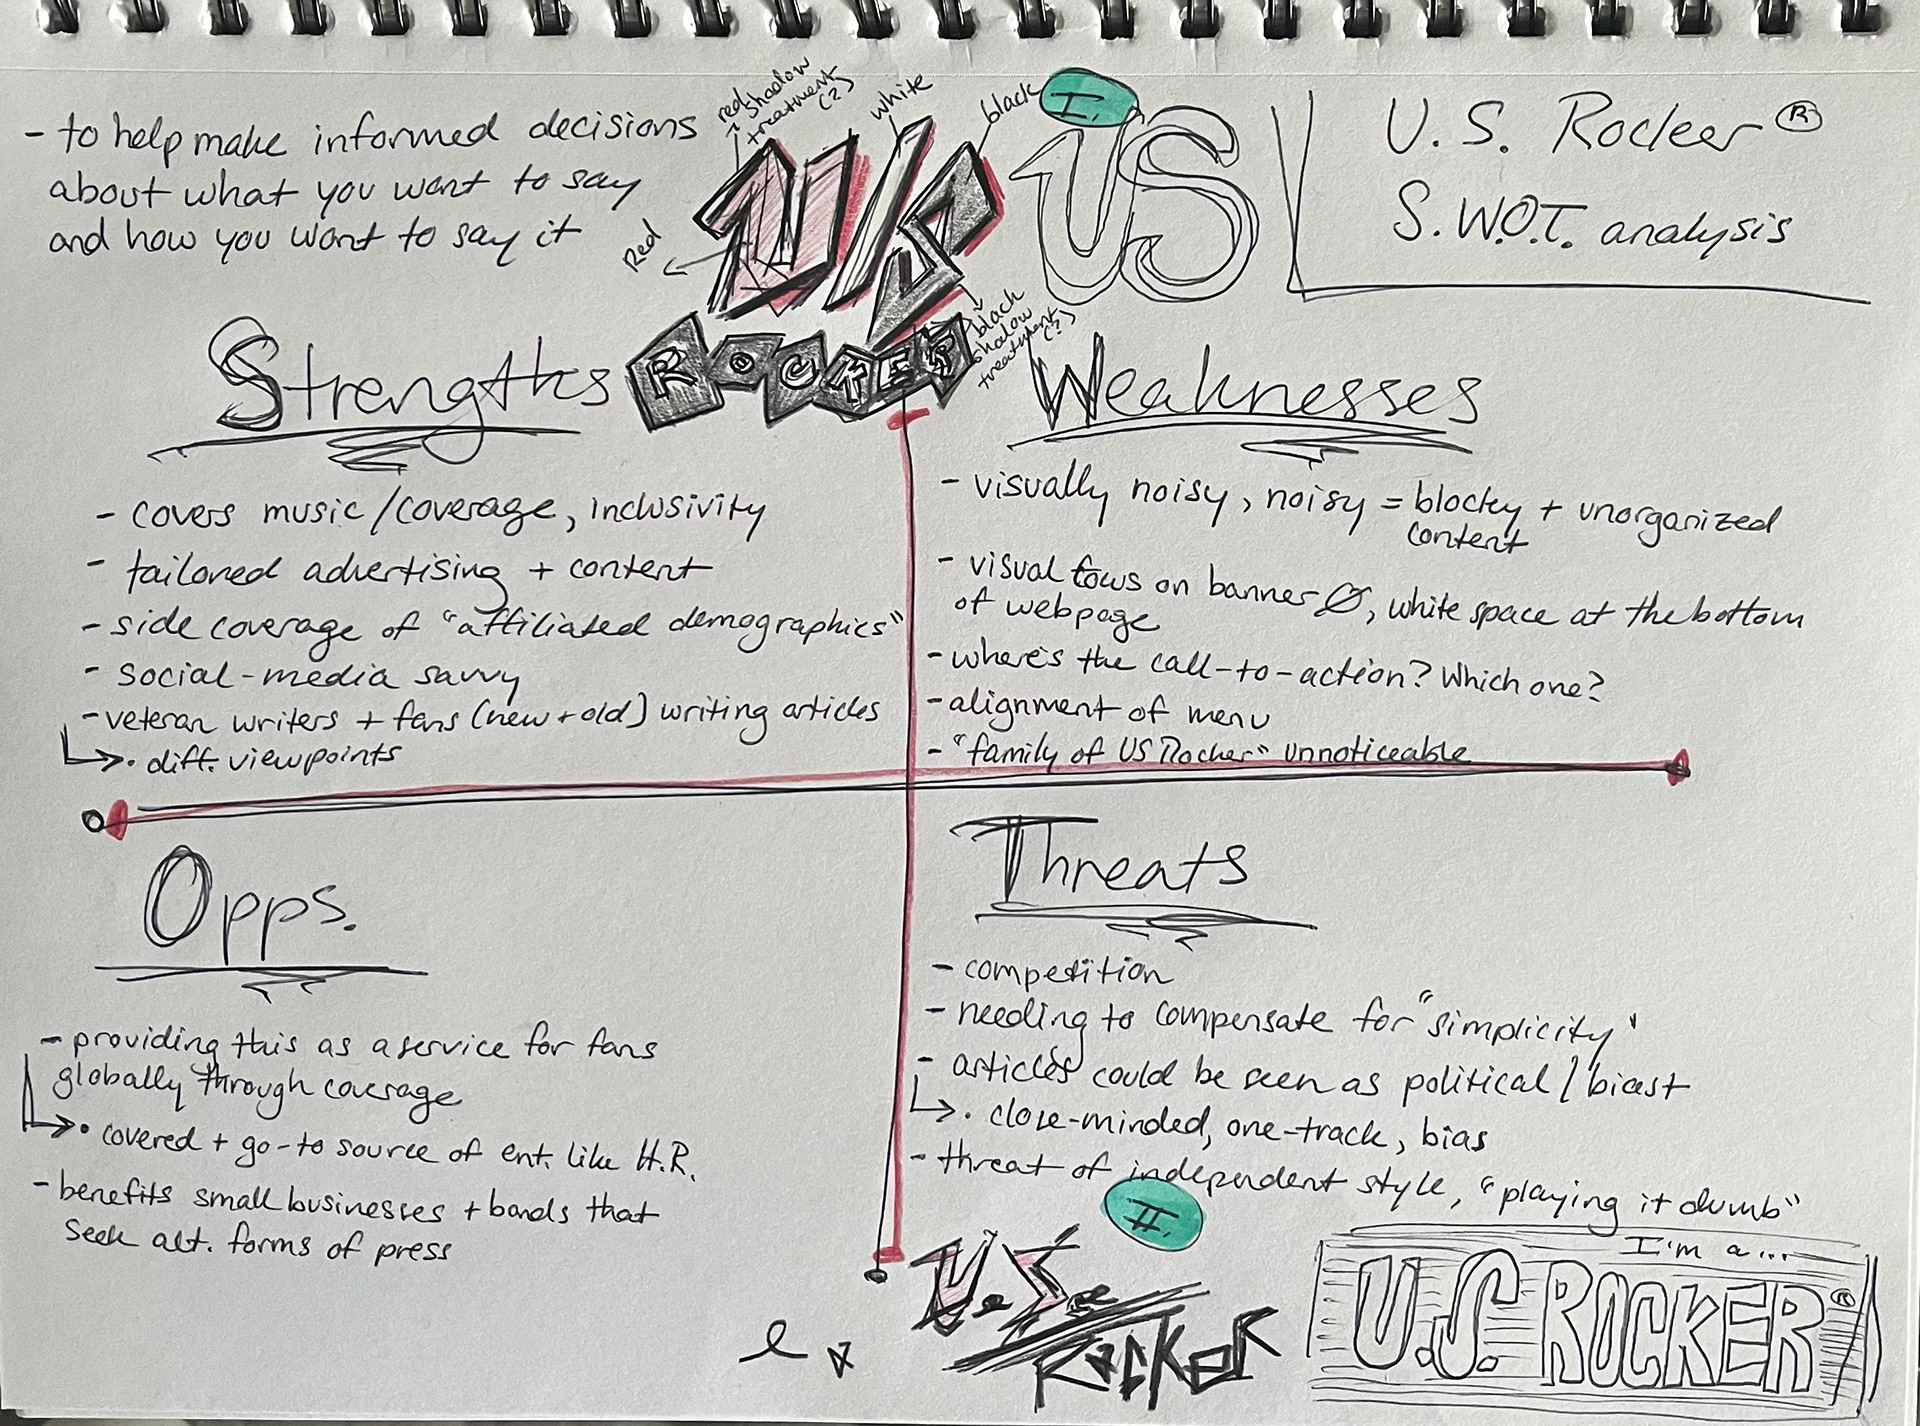 - to help make informed decisions
about what you want to say
and how you want to say it
red shadow
treatment
(?)
white
black
Red
U/S
ROCKER
black
shadow
treatment
(?)
I.
US
U.S. Rocker®
S.W.O.T. analysis
Strengths
- covers music/coverage, inclusivity
- tailored advertising + content
- side coverage of "affiliated demographics"
- social-media savvy
- veteran writers + fans (new + old) writing articles
→ • diff. viewpoints
Weaknesses
- visually noisy, noisy = blocky + unorganized
content
- visual focus on banner Ø, white space at the bottom
of webpage
- where's the call-to-action? Which one?
- alignment of menu
- "family of US Rocker" unnoticeable
Opps.
- providing this as a service for fans
globally through coverage
→ • covered + go-to source of ent. like H.R.
- benefits small businesses + bands that
seek alt. forms of press
Threats
- competition
- needing to compensate for "simplicity"
- articles could be seen as political/biast
→ • close-minded, one-track, bias
- threat of independent style, "playing it dumb"
II.
U.S.
ROCKER
I'm a...
U.S. ROCKER®